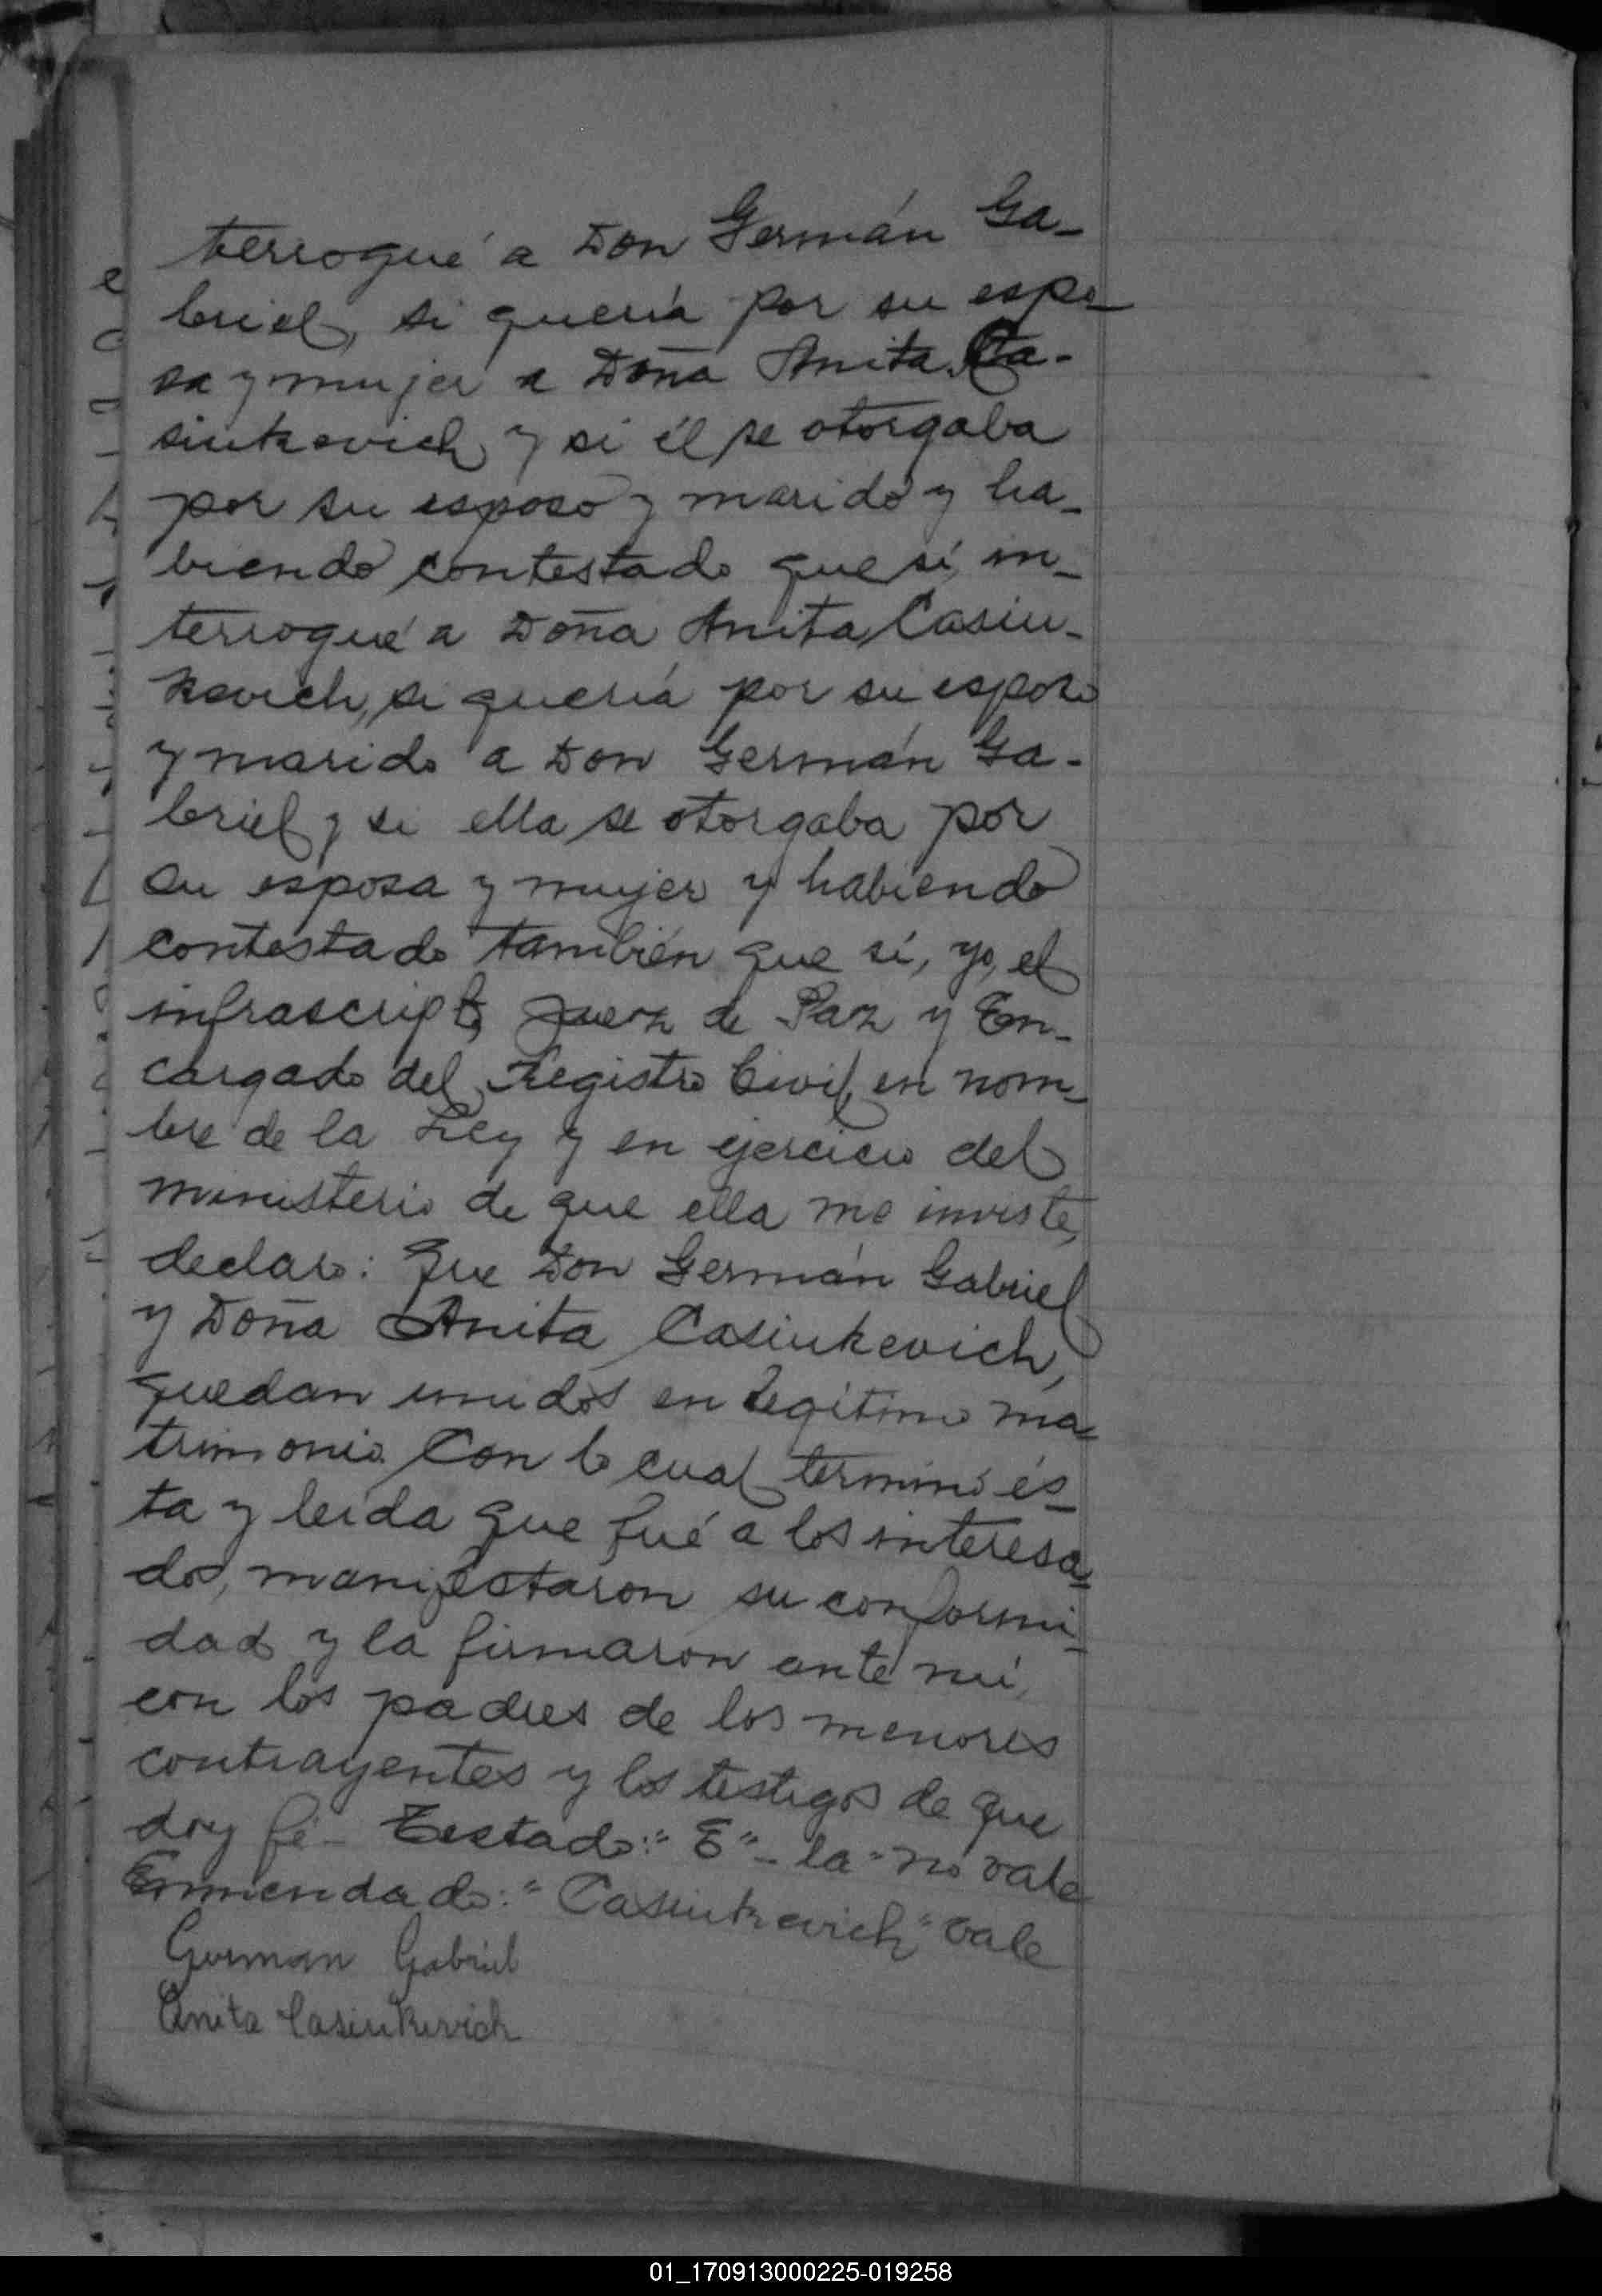 terrogué a Don Germán Ga-
briel, si quería por su espo-
sa y mujer a Doña Anita Ca-
siukevich y si él se otorgaba
por su esposo y marido y ha-
biendo contestado que sí, in-
terrogué a Doña Anita Casiu-
kevich, si quería por su esposo
y marido a Don Germán Ga-
briel y si ella se otorgaba por
su esposa y mujer y habiendo
contestado también que sí, yo, el
infrascripto, Juez de Paz y En-
cargado del Registro Civil, en nom-
bre de la Ley y en ejercicio del
ministerio de que ella me inviste,
declaro: Que Don Germán Gabriel
y Doña Anita Casiukevich,
quedan unidos en legítimo ma-
trimonio. Con lo cual terminó és-
ta y leida que fué a los interesa-
dos, manifestaron su conformi-
dad y la firmaron ante mí,
con los padres de los menores
contrayentes y los testigos de que
doy fé- Testado: "E" - la - no vale
Enmendado: "Casiukevich" vale
German Gabriel
Anita Casiukevich
01_170913000225-019258